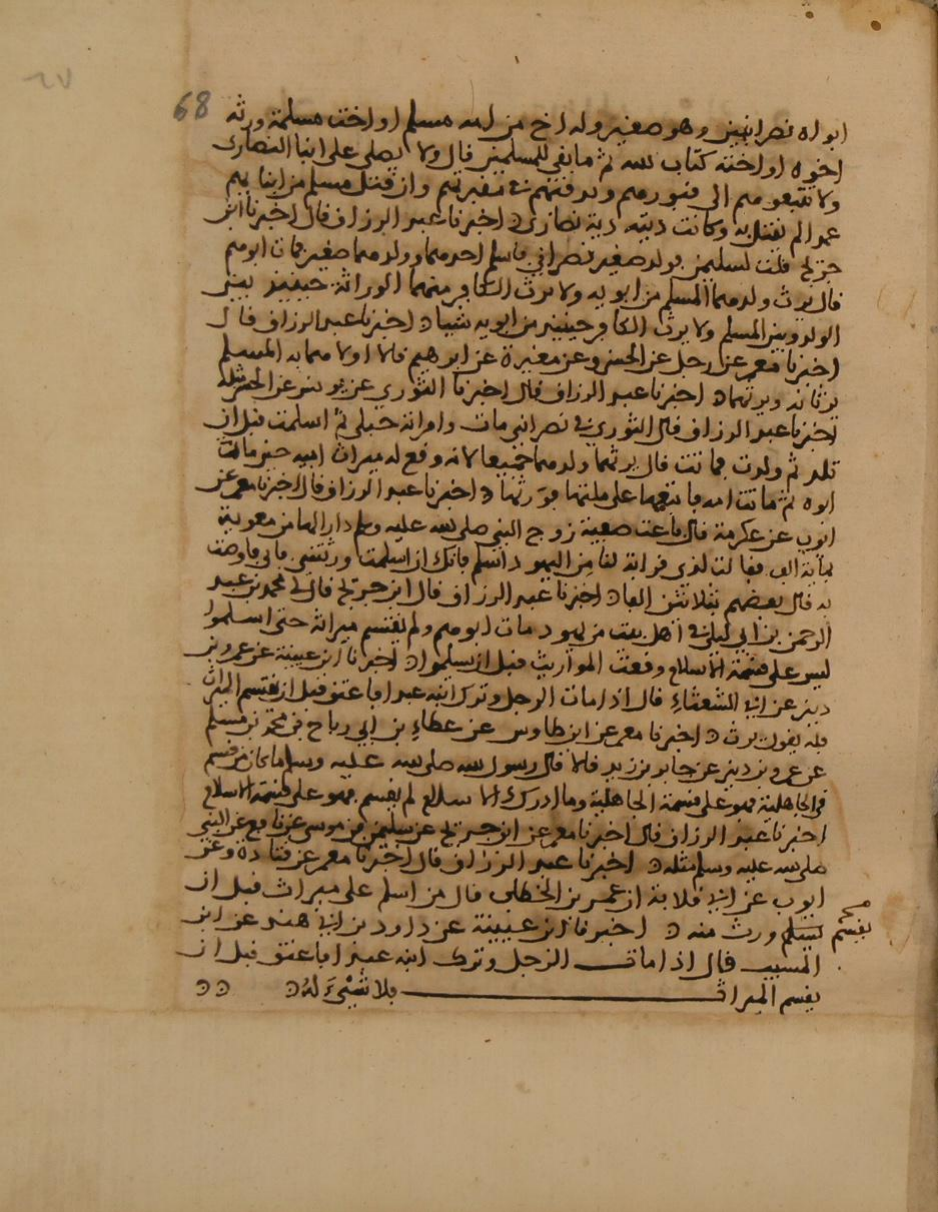 ٦٧
68
ابواه نصرانيين وهو صغير وله اخ من امه مسلم او اخت مسلمة ورثه
اخوه او اخته كتاب الله ثم ما بقي للمسلمين قال ولا يصلى على ابنا النصارى
ولا نتبعوهم الى قبورهم ويدفنهم في مقبرتهم وان قتل مسلم من ابنايهم
عمدا لم يقتل به وكانت ديته دية نصارى اخبرنا عبد الرزاق قال اخبرنا ابن
جريج قلت لسليمن بولد صغير نصراني فاسلم احدهما وولدهما صغير فمات ابوهم
قال يرث ولدهما المسلم من ابويه ولا يرث الكافر منهما الوراثة حينيذ بين
الولد وبين المسلم ولا يرث الكافر حينيذ من ابويه شيا اخبرنا عبد الرزاق قال
اخبرنا معمر عن رجل عن الحسن وعن مغيرة عن ابرهيم قالا اولاهما به المسلم
يرثانه ويرثهما اخبرنا عبد الرزاق قال اخبرنا الثوري عن يونس عن الحسن مثله
اخبرنا عبد الرزاق قال الثوري في نصراني مات وامراته حبلى ثم اسلمت قبل ان
تلد ثم ولدت فماتت قال يرثهما ولدهما جميعا لانه وقع له ميراث ابيه حين مات
ابوه ثم ماتت امه فاتبعها على ملتها فورثها اخبرنا عبد الرزاق قال اخبرنا معمر عن
ايوب عن عكرمة قال باعت صفية زوج النبي صلى الله عليه وسلم دارا لها من معوية
بماية الف فقالت لذي قرابة لها من اليهود اسلم فانك ان اسلمت ورثتني فابى فاوصت
له قال بعضهم بثلاثين الفا اخبرنا عبد الرزاق قال ابن جريج قال لي محمد بن عبد
الرحمن بن ابي ليلى في اهل بيت من يهود مات ابوهم ولم يقتسم ميراثه حتى اسلموا
ليس على قسمة الاسلام وقعت المواريث قبل ان يسلموا اخبرنا ابن عيينة عن عمرو بن
دينر عن ابي الشعثاء قال اذا مات الرجل وترك ابنه عبدا فاعتق قبل ان يقتسم الميراث
فله يقول يرث اخبرنا معمر عن ابن طاوس عن عطاء بن ابي رباح عن محمد بن مسلم
عن عمرو بن دينر عن جابر بن زيد قالا قال رسول الله صلى الله عليه وسلم ما كان من قسم
في الجاهلية فهو على قسمة الجاهلية وما ادرك الاسلام لم يقسم فهو على قسمة الاسلام
اخبرنا عبد الرزاق قال اخبرنا معمر عن ابن جريج عن سليمن بن موسى عن نافع عن النبي
صلى الله عليه وسلم مثله اخبرنا عبد الرزاق قال اخبرنا معمر عن قتادة وعن
ايوب عن ابي قلابة ان عمر بن الخطاب قال من اسلم على ميراث قبل ان
يقسم ورث منه اخبرنا ابن عيينة عن داود بن ابي هند عن ابن
المسيب قال اذا مات الرجل وترك ابنه عبدا فاعتق قبل ان
يقسم الميراث فلا شيء له